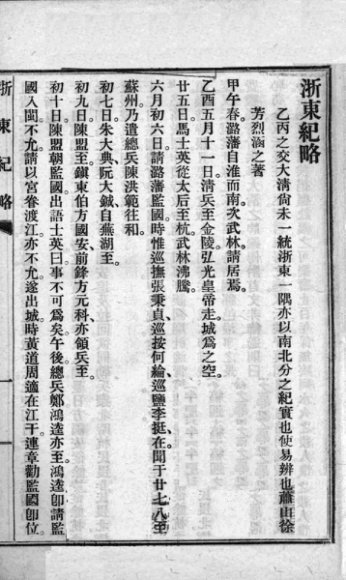 浙東紀略
乙丙之交大淸尙未一統浙東一隅亦以南北分之紀實也使易辨也蕭山徐
芳烈涵之著
甲午春潞藩自淮而南次武林請居焉。
乙酉五月十一日淸兵至金陵弘光皇帝走城爲之空。
廿五日馬士英從太后至杭武林沸騰。
六月初六日請潞藩監國時惟巡撫張秉貞巡按何綸巡鹽李挺在聞于廿七八至
蘇州乃遣總兵陳洪範往和。
初七日朱大典阮大鋮自蕪湖至。
初九日陳盟至鎭東伯方國安前鋒方元科亦領兵至。
初十日陳盟朝監國出語士英曰事不可爲矣午後總兵鄭鴻逵亦至鴻逵卽請監
國入閩不允請以宮眷渡江亦不允遂出城時黃道周適在江干連章勸監國卽位
浙東紀略
一